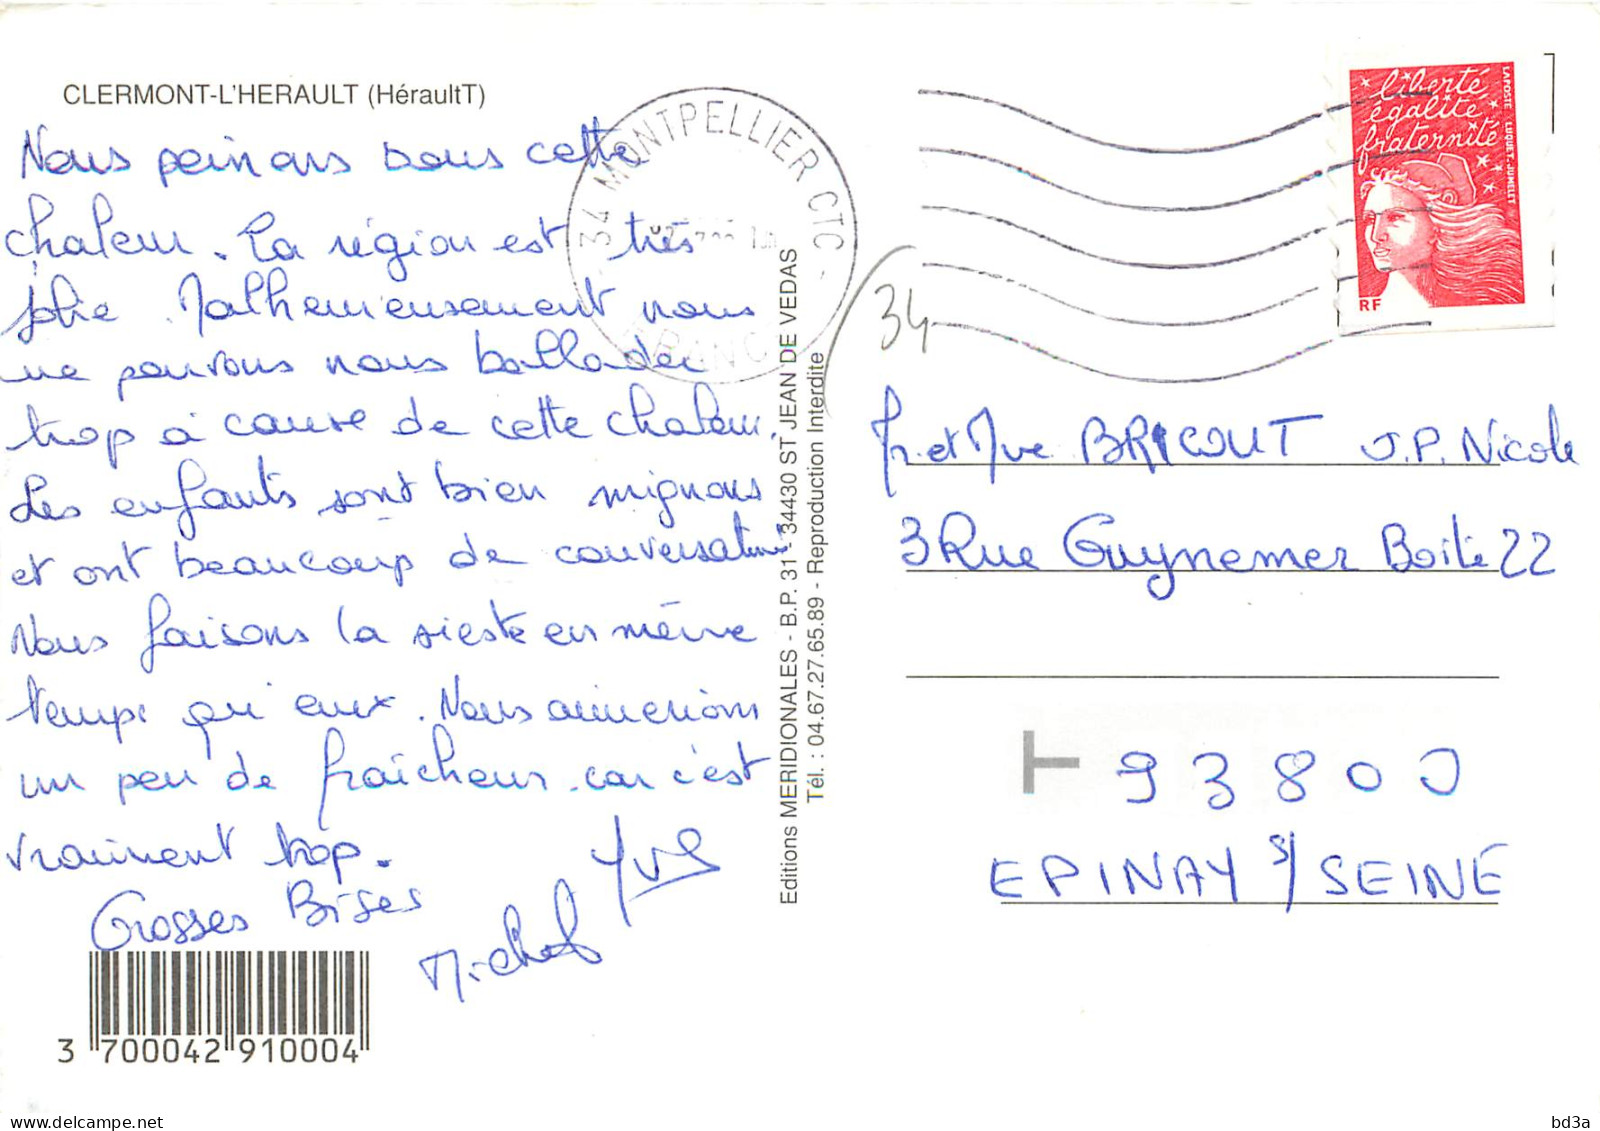 CLERMONT-L'HERAULT (HéraultT)
Nous peinons sous cette
chaleur. La région est très
jolie. Malheureusement nous
ne pouvons nous ballader
trop à cause de cette chaleur.
Les enfants sont bien mignons
et ont beaucoup de conversation
Nous faisons la sieste en même
temps qu'eux. Nous aimerions
un peu de fraîcheur car c'est
vraiment trop.
Grosses Bises
Yves
Michel
3 700042 910004
Editions MERIDIONALES - B.P. 31 - 34430 ST JEAN DE VEDAS
Tél. : 04.67.27.65.89 - Reproduction Interdite
34 MONTPELLIER CTC
FRANCE
34
liberté
égalité
fraternité
RF
LA POSTE LUQUET-JUMELET
Mr et Mme BRICOUT J.P. Nicole
3 Rue Guynemer Boite 22
93800
EPINAY S/ SEINE
delcampe.net
bd3a